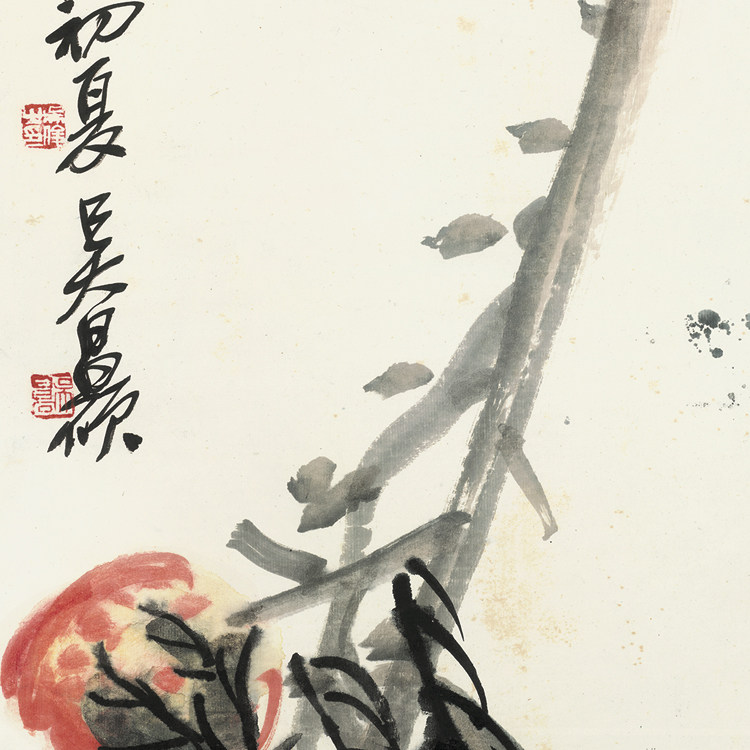 初夏吳昌碩